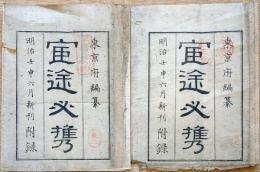 東京府編纂
宦途必携
明治壬申六月新刊 附錄
東京府編纂
宦途必携
明治壬申六月新刊 附錄